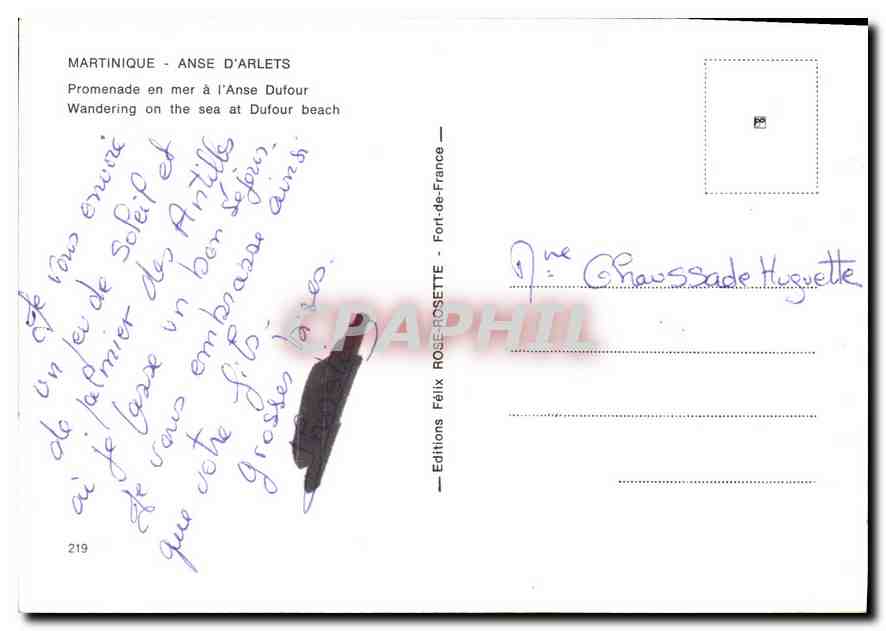 MARTINIQUE - ANSE D'ARLETS
Promenade en mer à l'Anse Dufour
Wandering on the sea at Dufour beach
Je vous envoie
un peu de soleil et
de palmier des Antilles
où je passe un bon séjour.
Je vous embrasse ainsi
que votre fils.
grosses bises.
219
Editions Félix ROSE-ROSETTE - Fort-de-France
CPAPHIL
Mme Chaussade Huguette